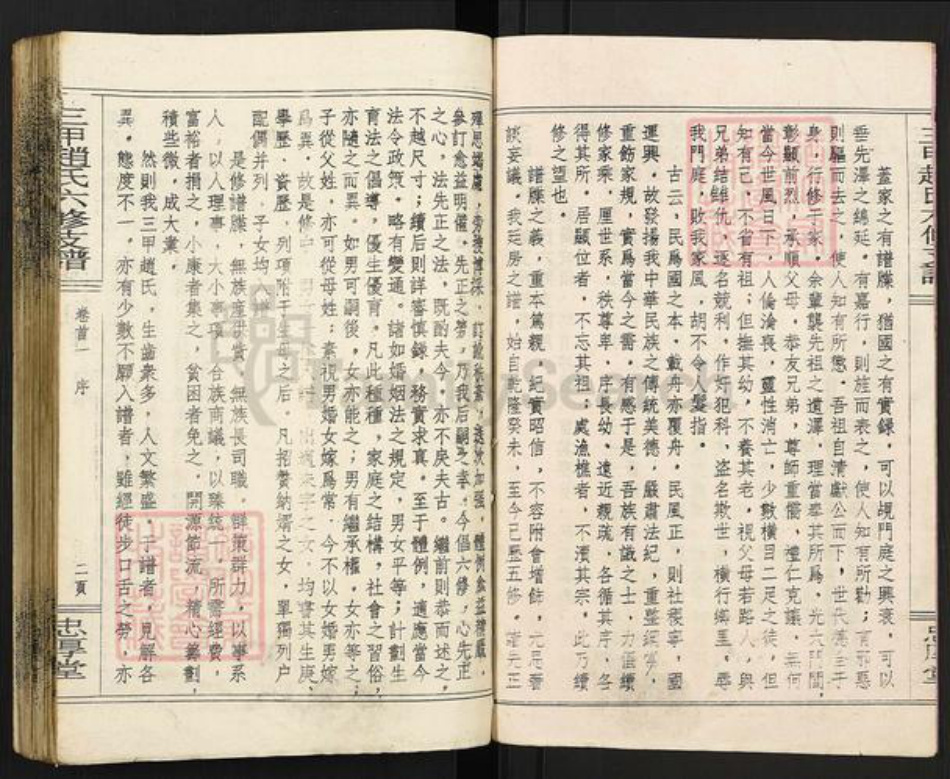 蓋家之有譜牒，猶國之有實錄，可以覘門庭之興衰，可以
垂先澤之綿延。有嘉行，則旌而表之，使人知有所勸；有邪惡
則驅而去之，使人知有所懲。吾祖自清獻公而下，世代
身，行修于家。余輩襲先祖之遺澤，理當奉其所為，光大門閭，
彰顯前烈，承順父母，恭友兄弟，尊師重儒，禮仁克讓。無何
當今世風日下，人倫淪喪，靈性消亡，少數橫目二足之徒，但
知有己，不省有祖；但撫其幼，不養其老。視父母若路人，與
兄弟結雖仇。逐名競利，作奸犯科，盜名欺世，橫行鄉里，辱
我門庭，敗我家風，胡不令人髮指。
古云，民為國之本，載舟亦覆舟。民風正，則社稷寧，國
運興。故發揚我中華民族之傳統美德，嚴肅法紀，重整綱常，
重飭家規，實為當今之需。有感于是，吾族有識之士，力倡續
修家乘，厘世系，秩尊卑，序長幼，遠近親疏，各循其序，各
得其所。居顯位者，不忘其祖；處漁樵者，不瀆其宗。此乃續
修之望也。
譜牒之義，重本篤親，紀實昭信，不容附會增飾，尤忌奢
談妄議。我廷房之譜，始自乾隆癸未，至今已歷五修。諸先正
殫思竭慮，旁搜博採，訂訛補紊，逐次加強，體例愈益精嚴，
參訂愈益明確。先正之勞，乃我后嗣之幸。今倡六修，心先正
之心，法先正之法，既酌夫今，亦不戾夫古。繼前則恭而述之，
不越尺寸；續后則詳審慎錄，務實求真。至于體例，適應當今
法令政策，略有變通。諸如婚姻法之規定，男女平等；計劃生
育法之倡導，優生優育。凡此種種，家庭之結構，社會之習俗，
亦隨之而異。如男可嗣後，女亦能之；男有繼承權，女亦等之；
子從父姓，亦可從母姓；素視男婚女嫁為常，今不以女婚男嫁
為異。故是修中，出 夫字之女，均書其生庚、
學歷、資歷，列項附于生母之后。凡招贅納婿之女，單獨列户
配偶并列，子女均入譜。
是修譜牒，無族產供費，無族長司職。群策群力，以事系
人，以人理事，大小事項，合族商議，以臻統一。所需經費，
富裕者捐之，小康者集之，貧困者免之。開源節流，精心籌劃，
積些微，成大業。
然則我三甲趙氏，生齒衆多，人文繁盛。于譜者，見解各
異，態度不一，亦有少數不願入譜者，雖經徒步口舌之勞，亦
三甲趙氏六修支譜
卷首一 序
二頁
忠厚堂